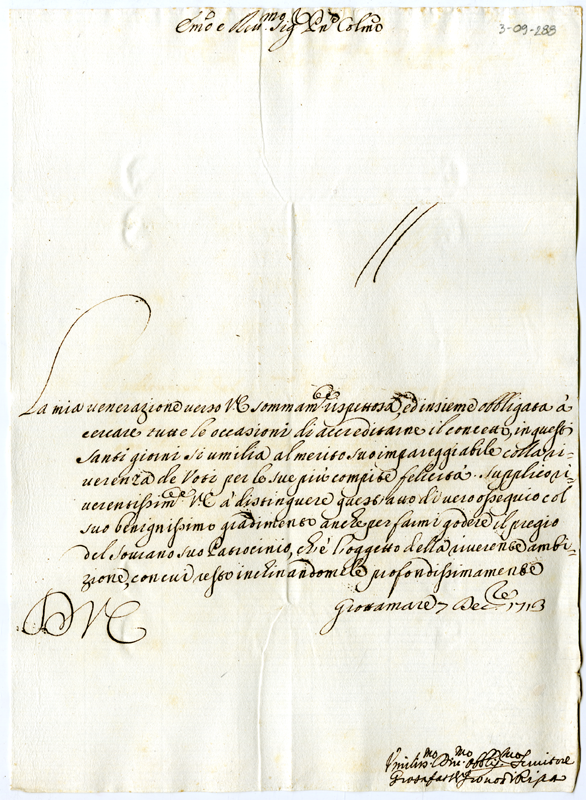 Em̃o e Rev.mo Sig.r Pñe Colmo
3-09-288
La mia venerazione verso V.E. sommam.te rispettosa, ed insieme obbligata à
cercare tutte le occasioni di accreditarne il concetto, in questi
Santi giorni si umilia al merito suo impareggiabile colla ri-
verenza de Voti per le sue più compite felicità. Supplico ri-
verentissim.te V.E. à distinguere quest'atto di vero ossequio col
suo benignissimo gradimento anche per farmi godere il pregio
del Sourano suo Patrocinio, ch'è l'oggetto della riverente ambi-
zione, con cui resto inchinandomele profondissimamente
Grottamare 7 Dec.re 1713
D V.E.
Umiliss.mo Div.mo Obblig.mo Servitore